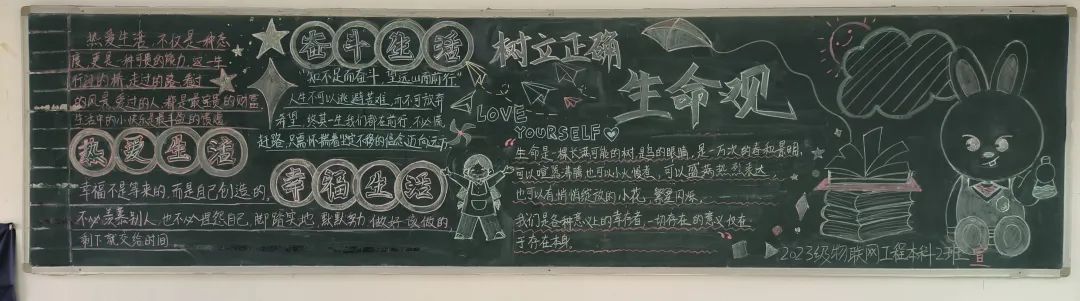 热爱生活，不仅是一种态
度，更是一种可贵的能力，这一生
行过的桥，走过的路，看过
的风景，爱过的人，都是最宝贵的财富
生活中的小快乐是最丰盈的馈赠
热爱生活
奋斗生活
"知不足而奋斗 望远山而前行"
人生不可以逃避苦难，亦不可放弃
希望，终其一生我们都在前行，不必展
赶路，只需怀揣着坚定不移的信念迈向远方
幸福生活
幸福不是等来的，而是自己创造的，
不必羡慕别人，也不必埋怨自己，脚踏实地，默默努力，做好该做的，
剩下就交给时间。
树立正确
生命观
LOVE
YOURSELF
"生命是一棵长满可能的树，是鸟的眼睛，是一万次的春和景明，
可以喧嚣沸腾也可以小火慢煮，可以盛满热烈表达，
也可以有悄悄绽放的小花，繁星闪烁，
我们是各种意义上的幸存者，一切存在的意义仅在
于存在本身。"
2023级物联网工程本科2班 宣